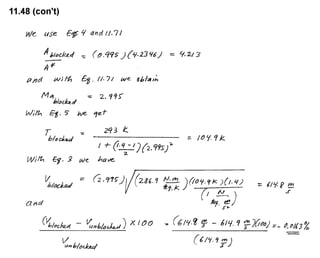 11.48 (con't)
We use Eqs 4 and 11.71
A blocked / A* = (0.995)(4.2346) = 4.213
and with Eq. 11.71 we obtain
Ma blocked = 2.995
With Eq. 5 we get
T blocked = 293 K / 1 + ((1.4 - 1)/2)(2.995)² = 104.9K
With Eq. 3 we have
V blocked = (2.995) √ (286.9 N.m/kg.K)(104.9K)(1.4) / (1 N/kg.m/s²) = 614.8 m/s
and
(V blocked - V unblocked) × 100 / V unblocked = (614.8 m/s - 614.9 m/s)(100) / (614.9 m/s) = - 0.0163%